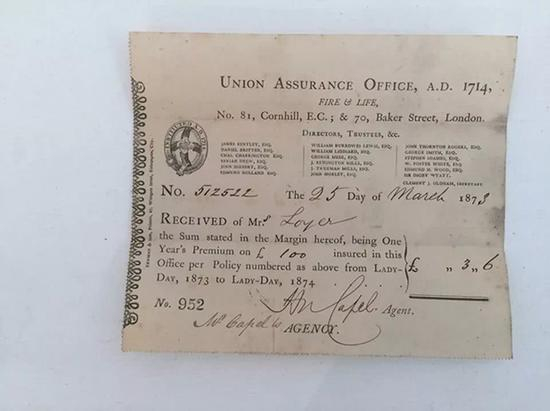 UNION ASSURANCE OFFICE, A.D. 1714,
FIRE & LIFE,
No. 81, Cornhill, E.C.; & 70, Baker Street, London.
DIRECTORS, TRUSTEES, &c.
JAMES BENTLEY, ESQ.
DANIEL BRITTEN, ESQ.
CHAS. CHARRINGTON ESQ.
BERIAH DREW, ESQ.
JOHN HIBBERT, ESQ.
EDMUND HOLLAND ESQ.
WILLIAM BURROWES LEWIS, ESQ.
WILLIAM LIDDIARD, ESQ.
GEORGE MEEK, ESQ.
J. REMINGTON MILLS, ESQ.
J. TRUEMAN MILLS, ESQ.
JOHN MORLEY, ESQ.
JOHN THORNTON ROGERS, ESQ.
GEORGE SMITH, ESQ.
STEPHEN SOAMES, ESQ.
W. FOSTER WHITE, ESQ.
EDMUND H. WOOD, ESQ.
SIR DIGBY WYATT.
CLEMENT J. OLDHAM, SECRETARY
No. 512522 The 25 Day of March 1873
RECEIVED of Mrs Loyer
the Sum stated in the Margin hereof, being One
Year's Premium on £ 100 insured in this
Office per Policy numbered as above from LADY-
DAY, 1873 to LADY-DAY, 1874
£ " 3 " 6
No. 952
Capel Agent.
Mr Capel's AGENCY.